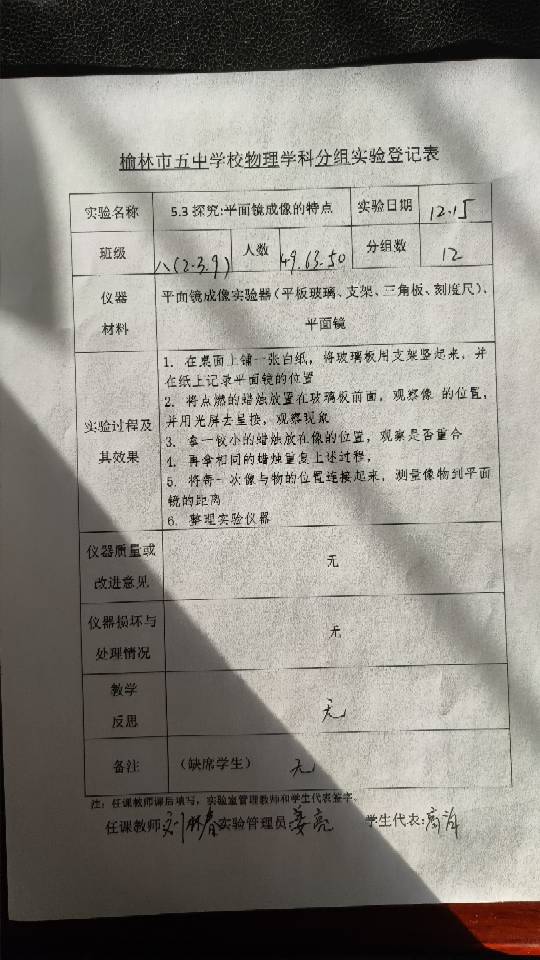 榆林市五中学校物理学科分组实验登记表
实验名称 5.3 探究:平面镜成像的特点 实验日期 12.15
班级 八(2.3.9) 人数 49.63.50 分组数 12
仪器
材料
平面镜成像实验器(平板玻璃、支架、三角板、刻度尺)、
平面镜
实验过程及
其效果
1. 在桌面上铺一张白纸，将玻璃板用支架竖起来，并
在纸上记录平面镜的位置
2. 将点燃的蜡烛放置在玻璃板前面，观察像 的位置，
并用光屏去呈接，观察现象
3. 拿一较小的蜡烛放在像的位置，观察是否重合
4. 再拿相同的蜡烛重复上述过程，
5. 将每一次像与物的位置连接起来，测量像物到平面
镜的距离
6. 整理实验仪器
仪器质量或
改进意见
无
仪器损坏与
处理情况
无
教学
反思
无
备注 (缺席学生) 无
注：任课教师课后填写，实验室管理教师和学生代表签字。
任课教师: 实验管理员:姜亮 学生代表: